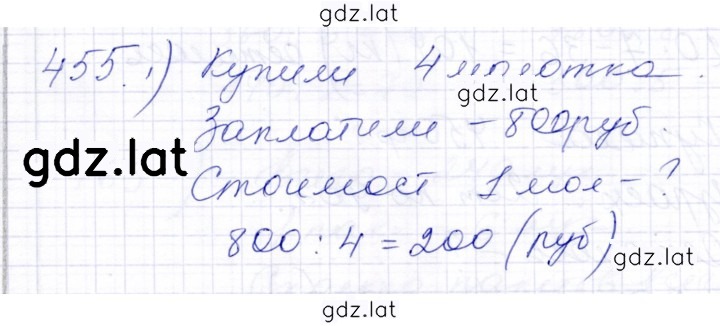 gdz.lat
455. 1) Купили 4 молотка.
gdz.lat
Заплатили – 800руб.
gdz.lat
Стоимост 1 мол – ?
800 : 4 = 200 (руб)
gdz.lat
gdz.lat